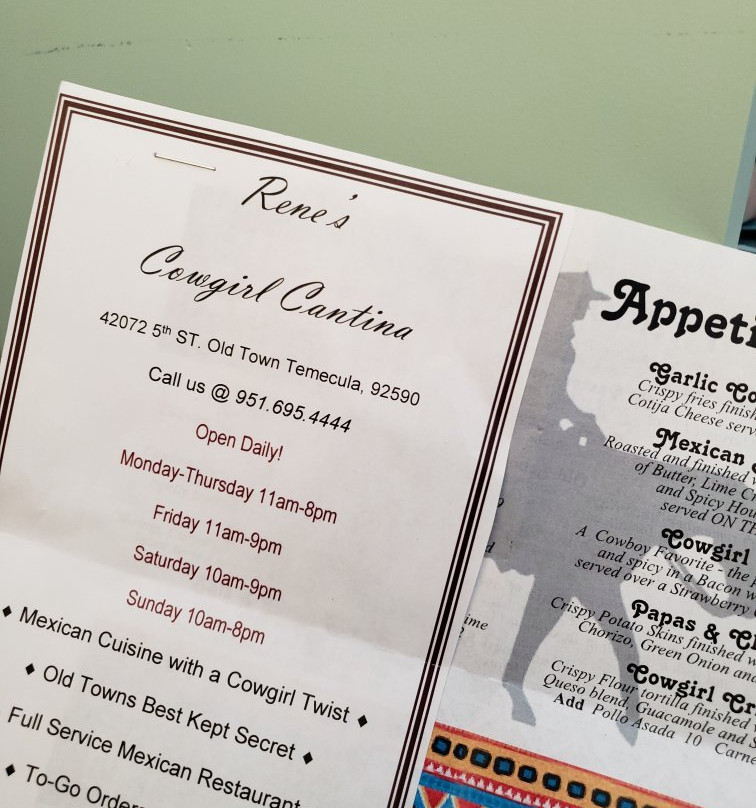 Rene's
Cowgirl Cantina
42072 5th ST. Old Town Temecula, 92590
Call us @ 951.695.4444
Open Daily!
Monday-Thursday 11am-8pm
Friday 11am-9pm
Saturday 10am-9pm
Sunday 10am-8pm
♦ Mexican Cuisine with a Cowgirl Twist ♦
♦ Old Towns Best Kept Secret ♦
Full Service Mexican Restaurant
♦ To-Go Orders
Garlic
Crispy fries
Cotija Cheese
Mexican
Roasted and finished
of Butter, Lime
and Spicy
served ON
Cowgirl
A Cowboy Favorite - the
and spicy in a Bacon
served over a Strawberry
Papas &
Crispy Potato Skins finished
Chorizo, Green Onion
Cowgirl
Crispy Flour tortilla finished
Queso blend, Guacamole and
Add Pollo Asada 10